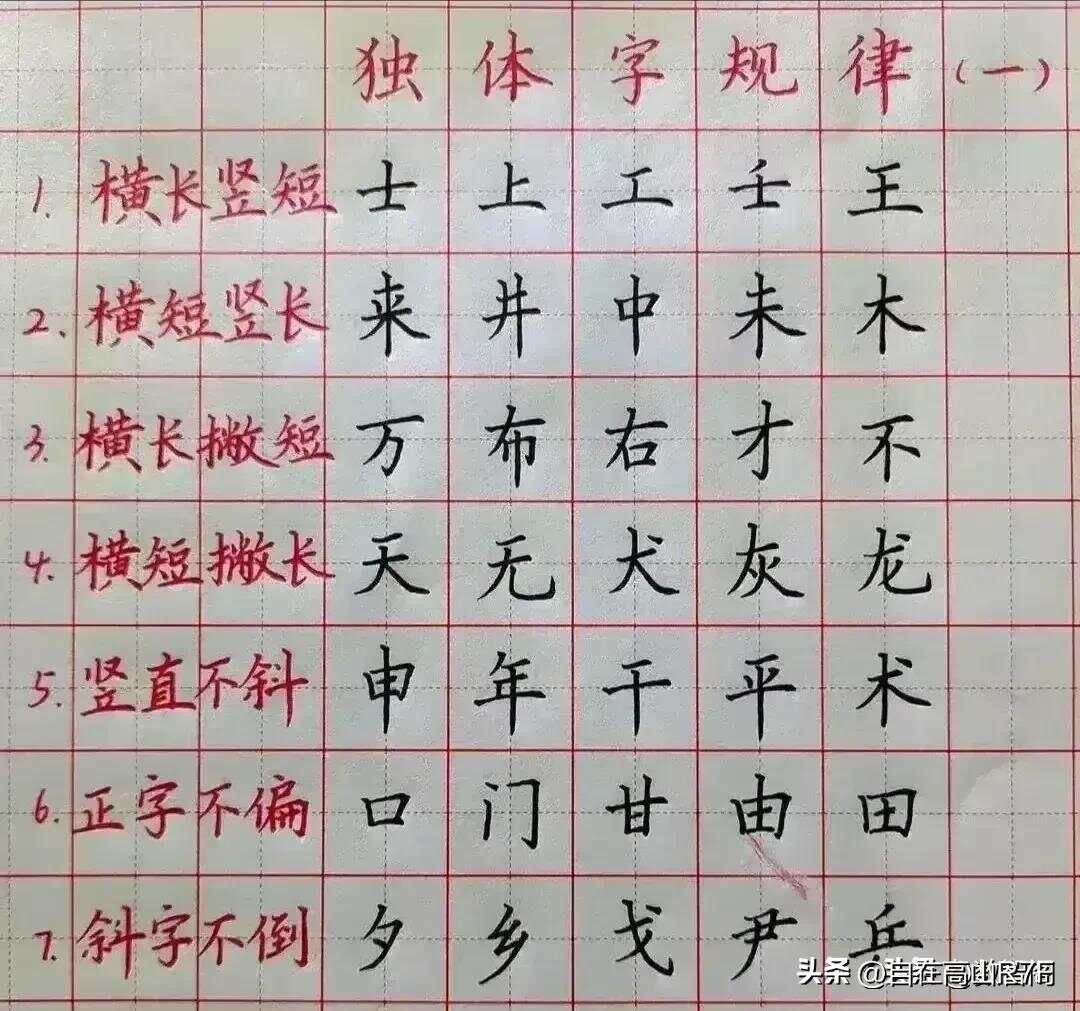 独体字规律(一)
1. 横长竖短 士 上 工 壬 王
2. 横短竖长 来 井 中 未 木
3. 横长撇短 万 布 右 才 不
4. 横短撇长 天 无 犬 灰 龙
5. 竖直不斜 申 年 干 平 术
6. 正字不偏 口 门 甘 由 田
7. 斜字不倒 夕 乡 戈 尹 乒
头条